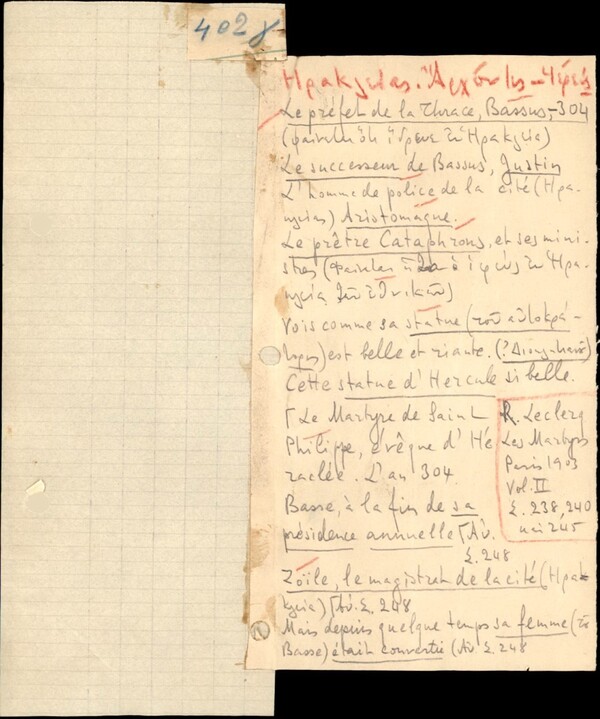 402γ
Ηρακλείας. Ἄρχοντες – Ἱερεῖς
Le préfet de la Thrace, Bassus, – 304
(φαίνεται ὅτι ἥδρευε ἐν Ηρακλεία)
Le successeur de Bassus, Justin
L'homme de police de la cité (Ηρα-
κλείας) Aristomaque.
Le prêtre Cataphrons, et ses mini-
stres (Φαίνεται ὁ ἱερεὺς ἐν Ηρα-
κλεία τῶν ἐθνικῶν)
Vois comme sa statue (τοῦ αὐτοκρά-
τορος) est belle et riante. (? Διοκλητιανοῦ)
Cette statue d'Hercule si belle.
Γ Le Martyre de Saint
Philippe, évêque d'Hé
raclée. L'an 304.
Basse, à la fin de sa
présidence annuelle Γ Αὐ.
Σ. 248
R. Leclerq
Les Martyrs
Paris 1903
Vol. II
Σ. 238, 240
και 245
Zoïle, le magistrat de la cité (Ηρα-
κλεία) Γ Αὐ. Σ. 248
Mais depuis quelque temps sa femme (τοῦ
Basse) était convertie (Αὐ. Σ. 248